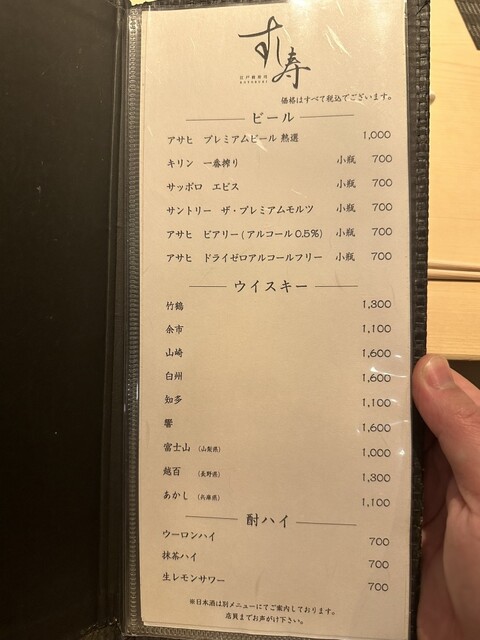 すし寿
価格はすべて税込でございます。
ビール
アサヒ プレミアムビール 熟選 1,000
キリン 一番搾り 小瓶 700
サッポロ エビス 小瓶 700
サントリー ザ・プレミアムモルツ 小瓶 700
アサヒ ビアリー(アルコール0.5%) 小瓶 700
アサヒ ドライゼロアルコールフリー 小瓶 700
ウイスキー
竹鶴 1,300
余市 1,100
山崎 1,600
白州 1,600
知多 1,100
響 1,600
富士山 (山梨県) 1,000
越百 (長野県) 1,300
あかし (兵庫県) 1,100
酎ハイ
ウーロンハイ 700
抹茶ハイ 700
生レモンサワー 700
※日本酒は別メニューにてご案内しております。
店員までお声がけ下さい。